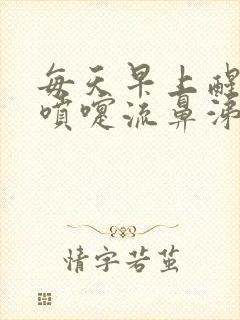 每天早上醒
喷嚏流鼻涕
情字若茧